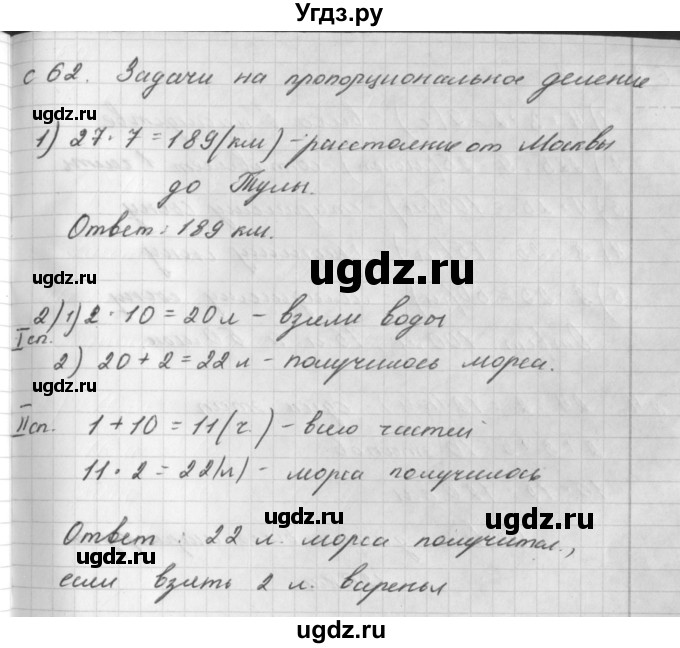 Угдз.ру
с 62. Задачи на пропорциональное деление
ugdz.ru
1) 27 · 7 = 189 (км) - расстояние от Москвы
до Тулы.
Ответ: 189 км.
ugdz.ru
ugdz.ru
2) 1) 2 · 10 = 20 л - взяли воды
I сп.
2) 20 + 2 = 22 л - получилось морса.
ugdz.ru
II сп. 1 + 10 = 11 (ч.) - всего частей
11 · 2 = 22 (л) - морса получилось
ugdz.ru
ugdz.ru
Ответ: 22 л. морса получится.,
ugdz.ru
если взять 2 л. варенья
ugdz.ru